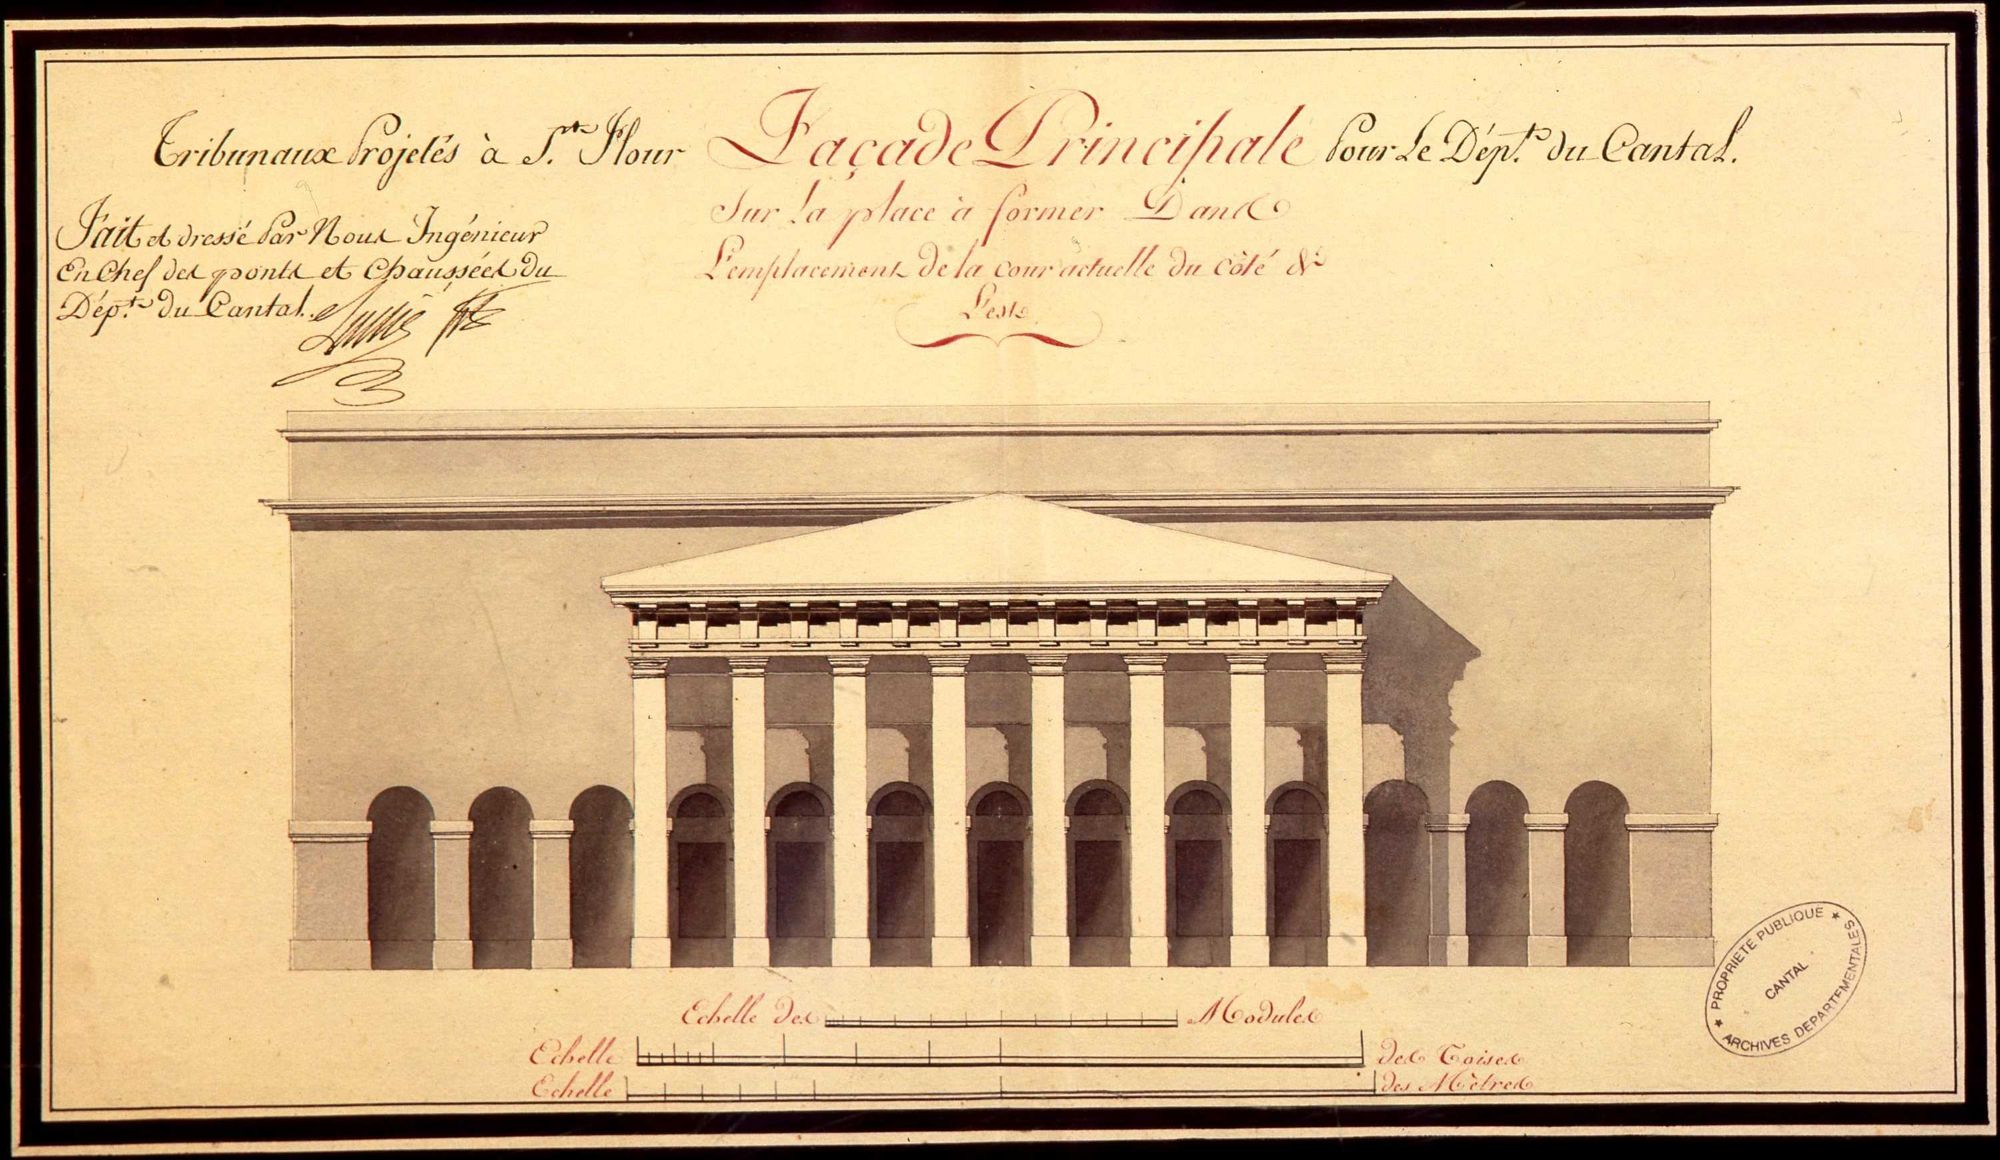 Tribunaux Projetés à S.t Flour Façade Principale Pour Le Dép.t du Cantal.
Sur La place à former Dans
L'emplacement de la cour actuelle du côté de
L'est
Fait et dressé Par Nous Ingénieur
En Chef des ponts et Chaussées du
Dép.t du Cantal.
Echelle des Modules
Echelle des Toises
Echelle des Mètres
★ PROPRIETE PUBLIQUE ★
CANTAL
ARCHIVES DEPARTEMENTALES